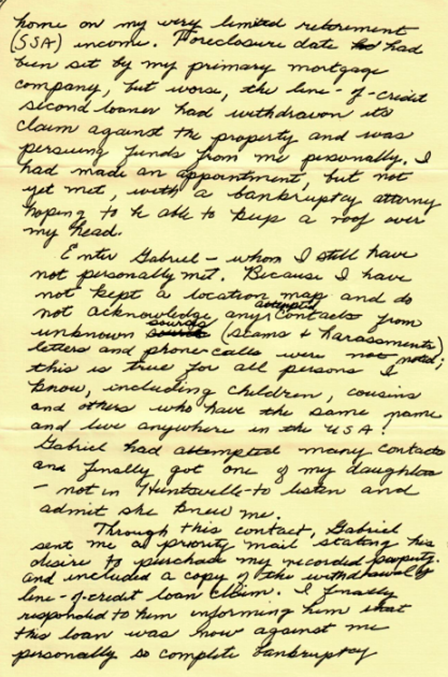 home on my very limited retirement
(SSA) income. Foreclosure date had
been set by my primary mortgage
company, but worse, the line-of-credit
second loaner had withdrawn its
claim against the property and was
persuing funds from me personally. I
had made an appointment, but not
yet met, with a bankruptcy attorny
hoping to be able to keep a roof over
my head.
Enter Gabriel - whom I still have
not personally met. Because I have
not kept a location map and do
not acknowledge any attempted contacts from
unknown sources (scams & harassments)
letters and phone calls were not noted;
this is true for all persons I
know, including children, cousins
and others who have the same name
and live anywhere in the USA!
Gabriel had attempted many contacts
and finally got one of my daughters
- not in Huntsville - to listen and
admit she knew me.
Through this contact, Gabriel
sent me a priority mail stating his
desire to purchase my recorded property.
and included a copy of the withdrawal of
line-of-credit loan claim. I finally
responded to him informing him that
this loan was now against me
personally so complete bankruptcy